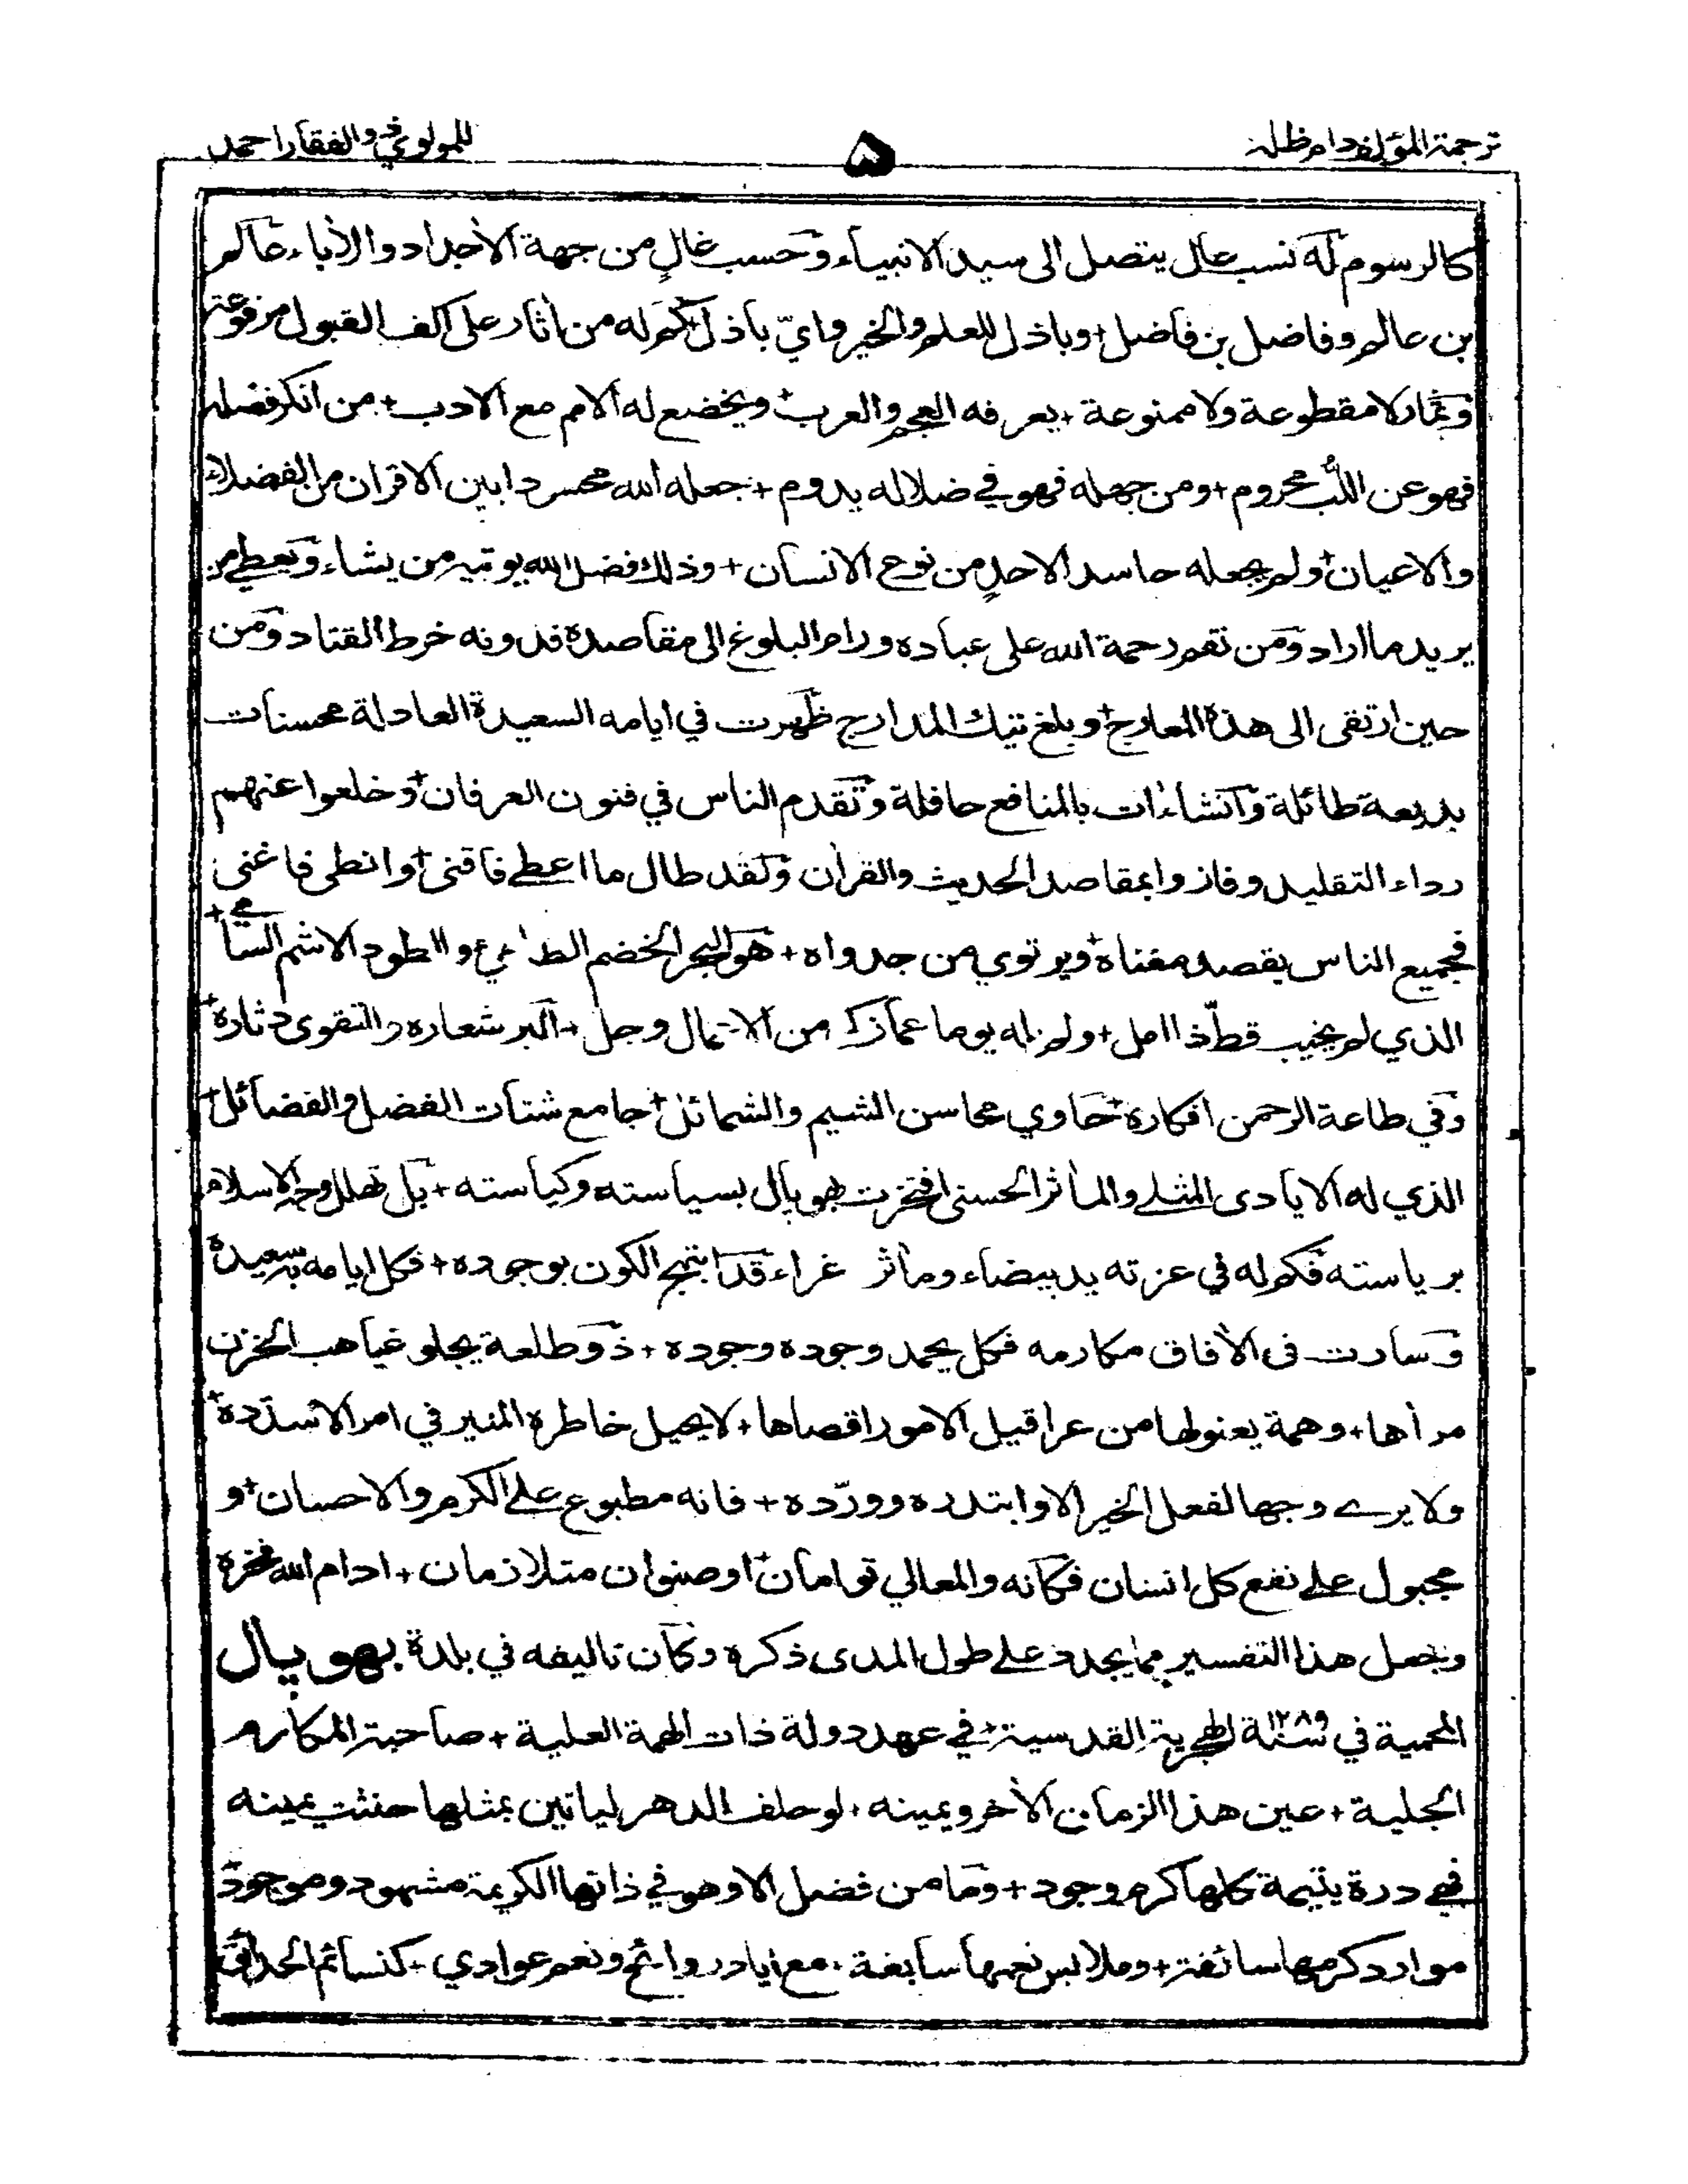 ترجمة المؤلف دام ظله
۵
للمولوي ذو الفقار احمد
كالرسوم له نسب عال يتصل الى سيد الانبياء وحسب غال من جهة الأجداد والأباء عالم
بن عالم وفاضل بن فاضل + وباذل للعلم والخير واي باذل كم له من أثار على اكف القبول مرفوعة
وثمار لا مقطوعة ولا ممنوعة + يعرفه العجم والعرب + ويخضع له الامم مع الادب + من انكر فضله
فهو عن اللب محروم + ومن جهله فهو في ضلاله يدوم + جعله الله محسودا بين الاقران من الفضلاء
والاعيان + ولم يجعله حاسدا لاحد من نوع الانسان + وذلك فضل الله يوتيه من يشاء ويعطي من
يريد ما اراد ومن نقم رحمة الله على عباده ورام البلوغ الى مقاصده فدونه خرط القتاد ومن
حين ارتقى الى هذه المعارج + وبلغ تيك المدارج ظهرت في ايامه السعيدة العادلة محسنات
بديعة طائلة وانشاءات بالمنافع حافلة وتقدم الناس في فنون العرفان + وخلعوا عنهم
رداء التقليد وفازوا بمقاصد الحديث والقرأن ولقد طال ما اعطى فاقنى + وانطى فاغنى
فجميع الناس يقصد مغناه + ويرتوي من جدواه + هو البحر الخضم الطامي والطود الاشم السامي +
الذي لم يخيب قط ذا امل + ولم يوما عما من الاعمال وجل + البر شعاره والتقوى دثاره +
وفي طاعة الرحمن افكاره + حاوي محاسن الشيم والشمائل + جامع شتات الفضل والفضائل +
الذي له الايادى المثلى والمأثر الحسنى افتخرت بهوپال بسياسته وكياسته + بل تهلل وجه الاسلام
برياسته فكم له في عزته يد بيضاء ومأثر غراء قد ابتهج الكون بوجوده + فكل ايامه به سعيدة
وسارت فى الأفاق مكارمه فكل يحمد وجوده وجوده + ذو طلعة يجلو غياهب الحزن
مرأها + وهمة يعنو لها من عراقيل الامور اقصاها + لا يحيل خاطره المنير في امر الا سدده +
ولا يرى وجها لفعل الخير الا وابتدره وورده + فانه مطبوع على الكرم والاحسان + و
مجبول على نفع كل انسان فكانه والمعالي توامان + او صنوان متلازمان + ادام الله فخره
وجعل هذا التفسير مما يجدد على طول المدى ذكره وكان تاليفه في بلدة بهوپال
المحمية في سنة ١٢٨٩ الهجرية القدسية + في عهد دولة ذات الهمة العلية + صاحبة المكارم
الجلية + عين هذا الزمان الأخر ويمينه + لو حلف الدهر لياتين بمثلها حنثت يمينه
فهي درة يتيمة كلها كرم وجود + وما من فضل الا وهو في ذاتها الكريمة مشهود وموجود
موارد كرمها سائغة + وملابس نعمها سابغة + مع اياد روائح ونعم عوادي + كنسائم الحدائق